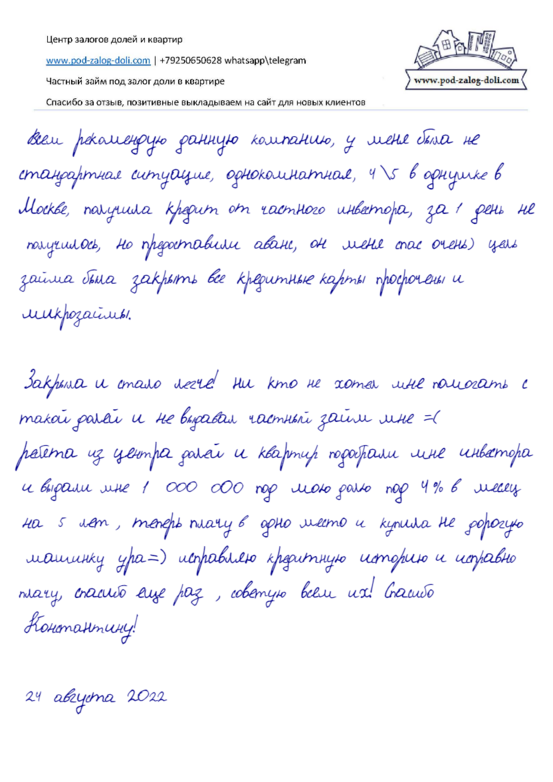 Центр залогов долей и квартир
www.pod-zalog-doli.com | +79250650628 whatsapp\telegram
Частный займ под залог доли в квартире
Спасибо за отзыв, позитивные выкладываем на сайт для новых клиентов
www.pod-zalog-doli.com
Всем рекомендую данную компанию, у меня была не
стандартная ситуация, однокомнатная, 4\5 в однушке в
Москве, получила кредит от частного инвестора, за 1 день не
получилось, но предоставили аванс, он меня спас очень) цель
займа была закрыть все кредитные карты просрочены и
микрозаймы.
Закрыла и стало легче! ни кто не хотел мне помогать с
такой долей и не выдавал частный займ мне =(
ребята из центра долей и квартир подобрали мне инвестора
и выдали мне 1 000 000 под мою долю под 4% в месец
на 5 лет, теперь плачу в одно место и купила не дорогую
машинку ура=) исправляю кредитную историю и исправно
плачу, спасибо еще раз, советую всем их! Спасибо
Константину!
24 августа 2022